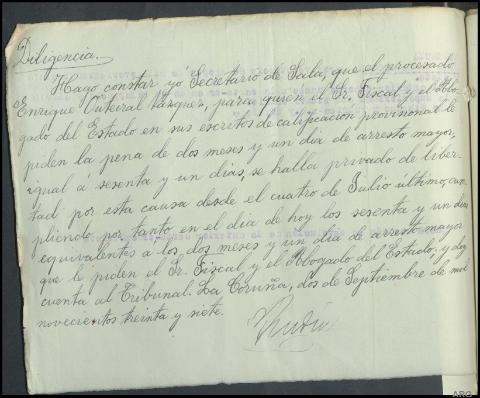 Diligencia.
Hago constar yó Secretario de Sala, que el procesado
Enrique Outeiral Vásquez, para quien el Sr. Fiscal y el Abo-
gado del Estado en sus escritos de calificación provisional le
piden la pena de dos meses y un día de arresto mayor,
igual á sesenta y un días, se halla privado de liber-
tad por esta causa desde el cuatro de Julio último, cum-
pliendo por tanto en el día de hoy los sesenta y un días
equivalentes a los dos meses y un día de arresto mayor
que le piden el Sr. Fiscal y el Abogado del Estado, y doy
cuenta al Tribunal. La Coruña, dos de Septiembre de mil
novecientos treinta y siete.
ARG